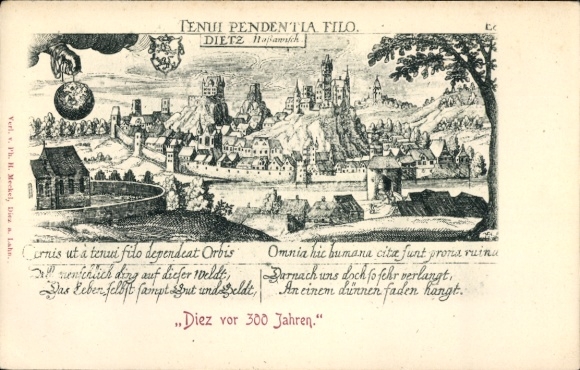 TENUI PENDENTIA FILO.
DIETZ Nassawisch
Cernis ut à tenui filo dependeat Orbis
Omnia hic humana citæ sunt prona ruinæ
All menschlich ding auf dieser Weldt,
Das Leben selbst sampt Gut und Geldt,
Darnach uns doch so sehr verlangt,
An einem dünnen faden hangt.
„Diez vor 300 Jahren."
Verl. v. Ph. H. Meckel, Diez a. Lahn.